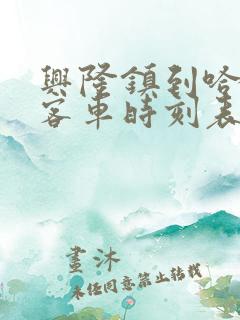 興隆鎮到哈
客車時刻表
畫沐
未經同意禁止轉載